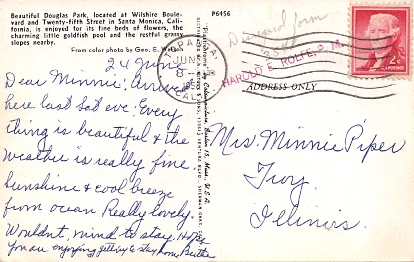 Beautiful Douglas Park, located at Wilshire Boule-
vard and Twenty-fifth Street in Santa Monica, Cali-
fornia, is enjoyed for its fine beds of flowers, the
charming little goldfish pool and the restful grassy
slopes nearby.
From color photo by Geo. E. Watson
P6456
24 June
Dear Minnie: Arrived
here last Sat eve. Every
thing is beautiful & the
weather is really fine.
Sunshine & cool breeze
from ocean Really lovely.
Wouldnt mind to stay. Hope
you are enjoying getting to stay home Bertha
JUN
CALIF
HAROLD E. ROLFE, P. M.
ADDRESS ONLY
2¢
Mrs. Minnie Piper
Troy
Illinois.